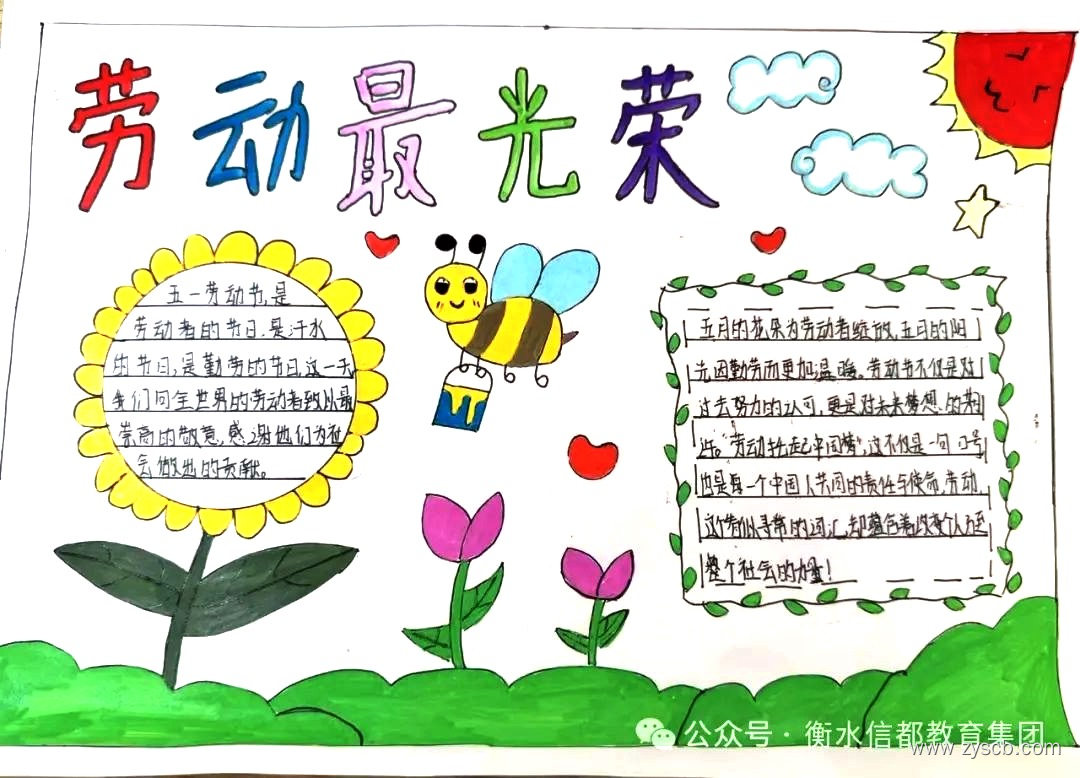 劳动最光荣
五一劳动节,是
劳动者的节日.是汗水
的节日,是勤劳的节日,这一天
我们向全世界的劳动者致以最
崇高的敬意,感谢他们为社
会做出的贡献。
五月的花朵为劳动者绽放,五月的阳
光因勤劳而更加温暖。劳动节不仅是对
过去努力的认可,更是对未来梦想的期
许。"劳动托起中国梦",这不仅是一句口号
也是每一个中国人共同的责任与使命,劳动,
这个看似寻常的词汇,却蕴含着改变个人乃至
整个社会的力量!
公众号·衡水信都教育集团
www.zyscb.com